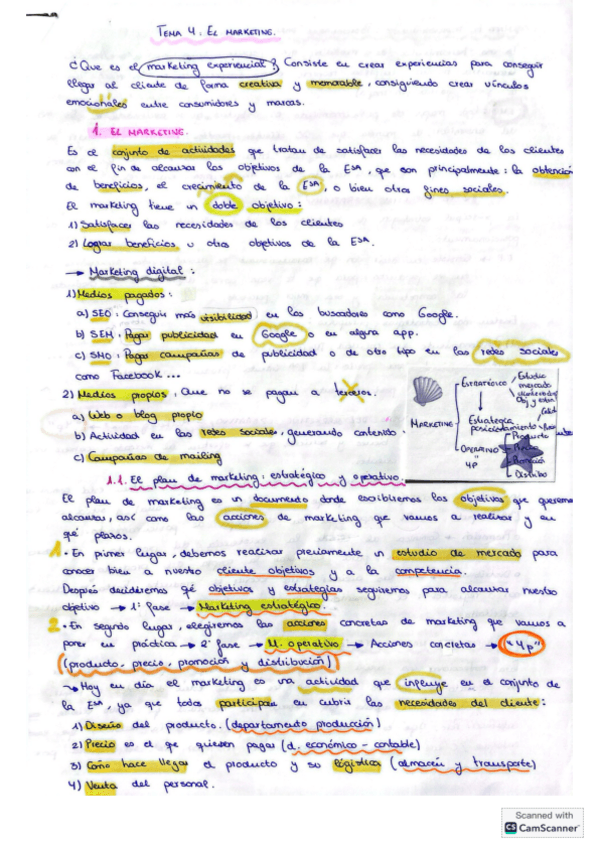 TEMA 4: EL MARKETING.
¿Que es el marketing experiencial? Consiste en crear experiencias para conseguir
llegar al cliente de forma creativa y memorable, consiguiendo crear vínculos
emocionales entre consumidores y marcas.
1. EL MARKETING.
Es el conjunto de actividades que tratan de satisfacer las necesidades de los clientes
con el fin de alcanzar los objetivos de la ESA, que son principalmente: la obtención
de beneficios, el crecimiento de la ESA, o bien otros fines sociales.
El marketing tiene un doble objetivo:
1) Satisfacer las necesidades de los clientes
2) Lograr beneficios u otros objetivos de la ESA.
→ Marketing digital:
1) Medios pagados:
a) SEO: Conseguir más visibilidad en los buscadores como Google.
b) SEM: Pagar publicidad en Google o en alguna app.
c) SMO: Pagar campañas de publicidad o de otro tipo en las redes sociales
como Facebook...
2) Medios propios: Que no se pagan a terceros.
a) Web o blog propio
b) Actividad en las redes sociales, generando contenido
c) Campañas de mailing
MARKETING
Estratégico
Estudio
mercado
Obj y estra
Estrategia
posicionamiento
OPERATIVO
4P
Producto
Precio
Promoción
Distribu
1.1. El plan de marketing: estratégico y operativo.
El plan de marketing es un documento donde escribiremos los objetivos que queremos
alcanzar, así como las acciones de marketing que vamos a realizar y en
qé plazos.
1 · En primer lugar, debemos realizar previamente un estudio de mercado para
conocer bien a nuestro cliente objetivos y a la competencia.
Después decidiremos qé objetivos y estrategias seguiremos para alcanzar nuestro
objetivo → 1ª fase → Marketing estratégico.
2 · En segundo lugar, elegiremos las acciones concretas de marketing que vamos a
poner en práctica → 2ª fase → M. operativo → Acciones concretas → "4p"
(producto, precio, promoción y distribución)
→ Hoy en día el marketing es una actividad que influye en el conjunto de
la ESA, ya que todos participan en cubrir las necesidades del cliente:
1) Diseño del producto. (departamento producción)
2) Precio es el qe quieren pagar (d. económico - contable)
3) Cómo hace llegar el producto y su logística (almacén y transporte)
4) Venta del personal.
Scanned with
CS CamScanner